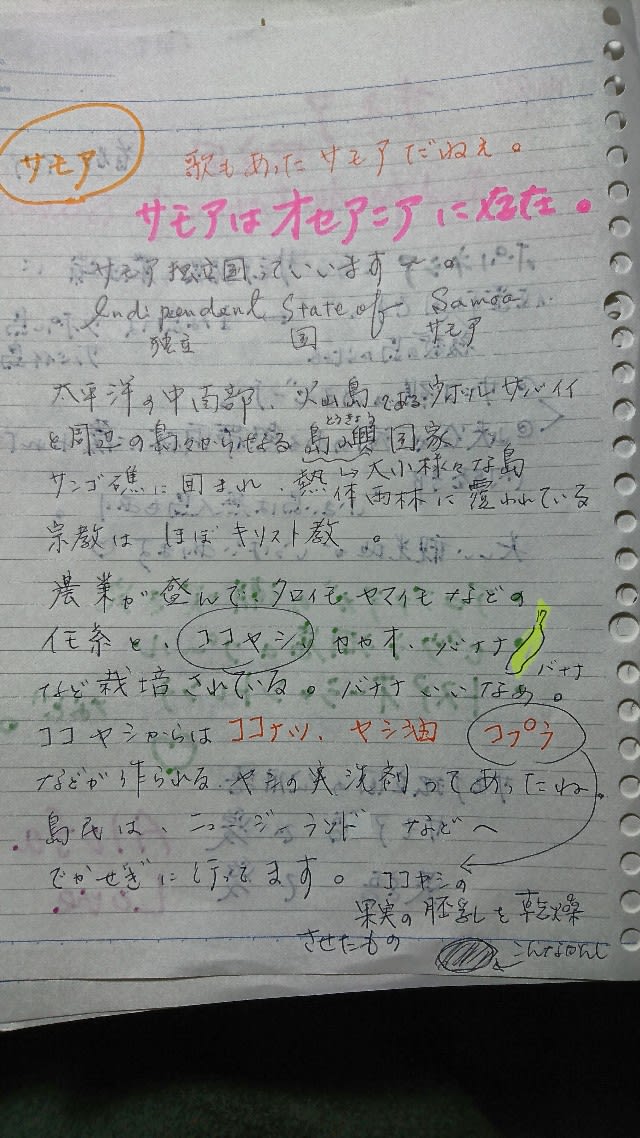 サモア
歌もあったサモアだねぇ。
サモアはオセアニアに存在。
サモア独立国っていいます〜。
Independent State of Samoa
独立 国 サモア
太平洋の中南部、火山島である、ウポル、サバイイ
と周辺の島々からなる 島嶼国家
とうしょ
→大小様々な島
サンゴ礁に囲まれ、熱体雨林に覆われている
宗教は ほぼキリスト教 。
農業が盛んで、タロイモ ヤマイモ などの
イモ系と、ココヤシ、カカオ、バナナ
バナナ
など栽培されている。バナナいいなぁ。
ココヤシからは ココナツ、ヤシ油 コプラ
などが作られる。ヤシの実洗剤ってあったね。
島民は、ニュージーランド などへ
でかせぎに行ってます。
ココヤシの
果実の胚乳を乾燥
させたもの
こんなかんじ